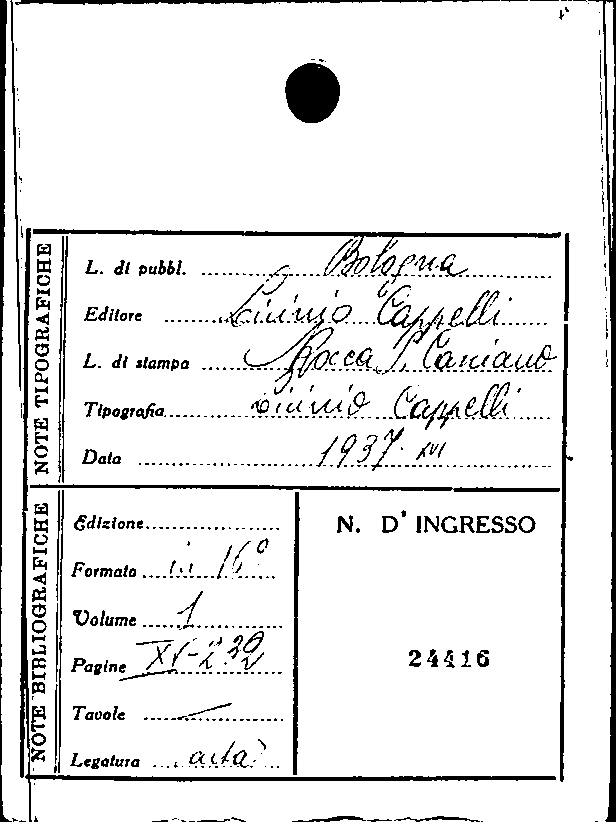 NOTE TIPOGRAFICHE
L. di pubbl. Bologna
Editore Licinio Cappelli
L. di stampa Rocca S. Casciano
Tipografia Licinio Cappelli
Data 1937. XVI
NOTE BIBLIOGRAFICHE
Edizione
Formato in 16º
Volume 1
Pagine XV-232
Tavole —
Legatura carta
N. D' INGRESSO
24416